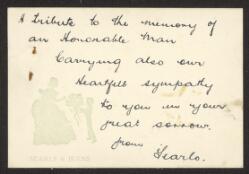 A Tribute to the memory of
an Honorable Man
Carrying also our
Heartfelt sympathy
to you in your
great sorrow.
from
Searls.